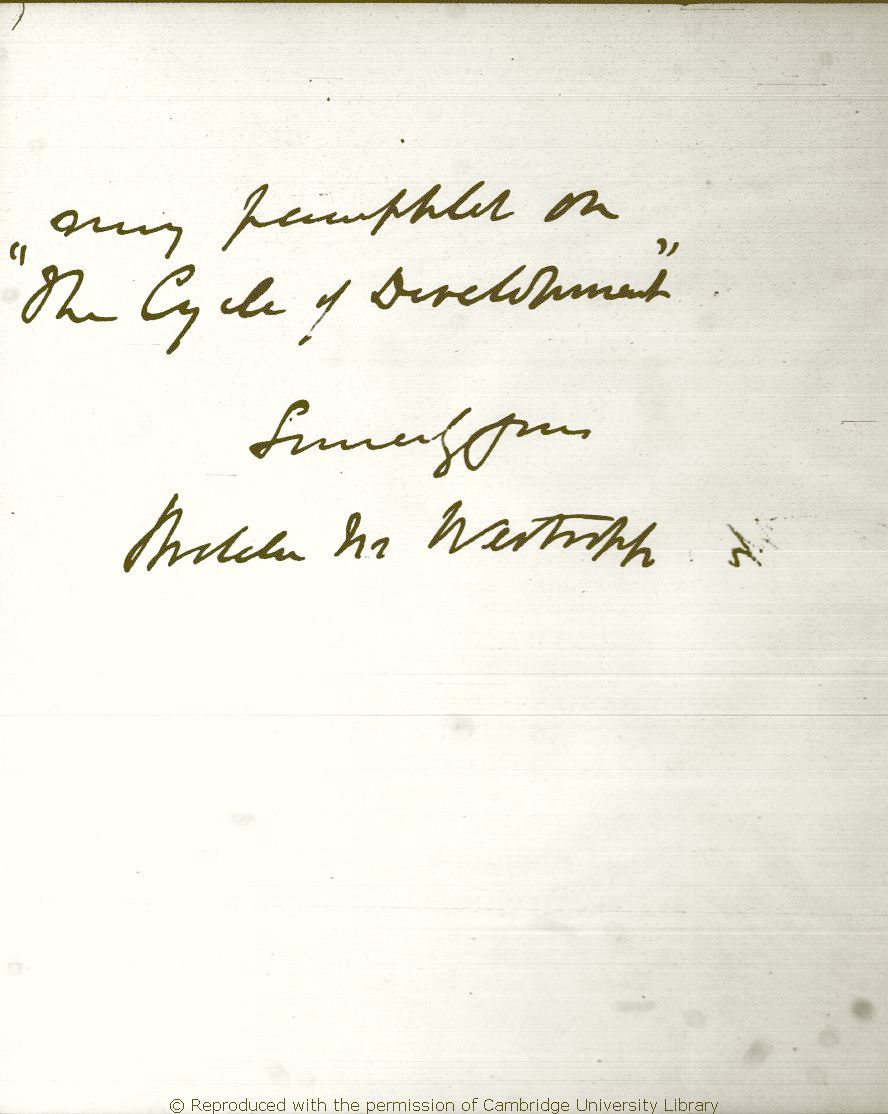 my pamphlet on
"The Cycle of Development"
Sincerely yours
Hodder M Westropp
© Reproduced with the permission of Cambridge University Library